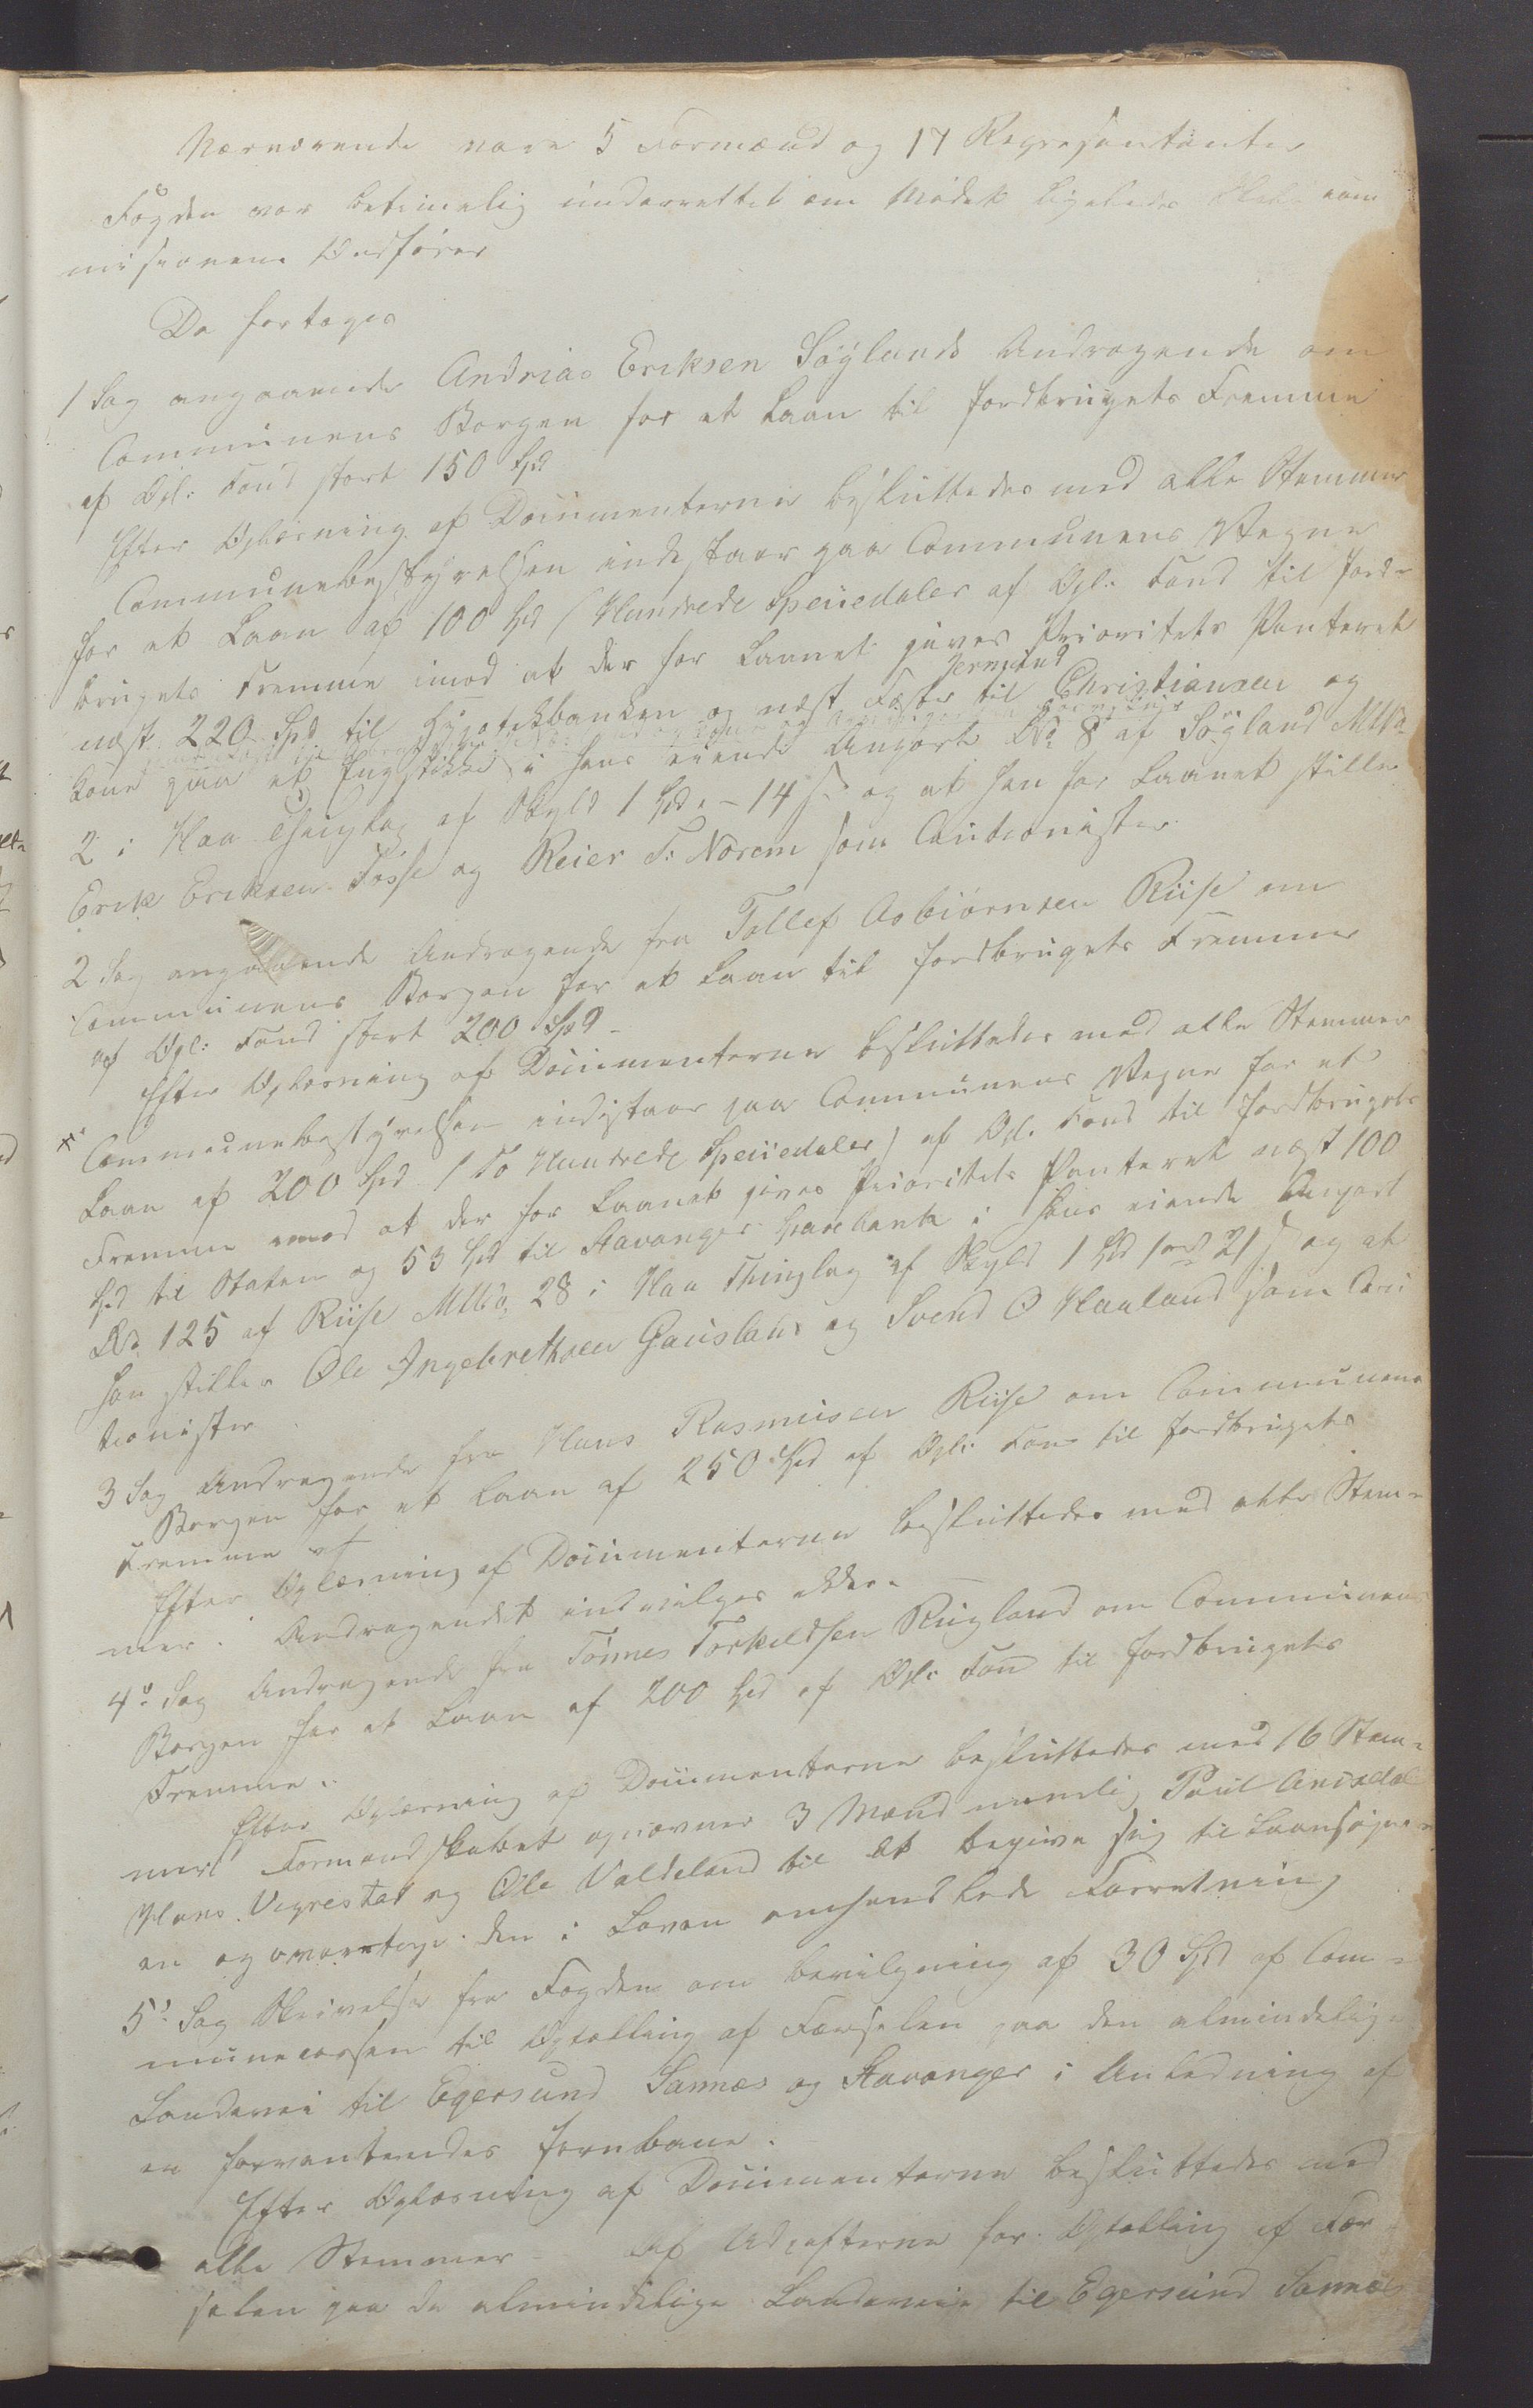 Nærværende vare 5 Formænd og 17 Repræsentanter
Fogden var betimelig underrettet om Mødet ligeledes com
missionens Ordfører
Da foretoges
1 Sag angaaende Andrias Eriksen Søylands Andragende om
Communens Borgen for et Laan til Jordbrugets Fremme
af Opl: Fond stort 150 Spd
Efter Oplæsning af Documenterne besluttedes med alle Stemmer
Communebestyrelsen indestaar paa Communens Vegne
for et Laan af 100 Spd (Hundrede Speciedaler af Opl: Fond til Jord-
brugets Fremme imod at der for Laanet gives Prioritets Panteret
næst 220 Spd til Hypotekbanken og næst Føster til Jermund Christiansen og
Kone paa et Jugstikke i hans eiende Anpart No 8 af Søyland MNo
2 i Haa Thinglag af Skyld 1 Spd - 14 s og at han for Laanet stiller
Erik Eriksen Fosse og Reier T: Norem som Cautionister
2 Sag angaaende Andragende fra Tollef Asbiørnsen Riise om
Communens Borgen for et Laan til Jordbrugets Fremme
af Opl: Fond stort 200 Spd -
Efter Oplæsning af Documenterne besluttedes med alle Stemmer
Communebestyrelsen indestaar paa Communens Vegne for et
Laan af 200 Spd (To Hundrede Speciedaler) af Opl. Fond til Jordbrugets
Fremme imod at der for Laanet gives Prioritets Panteret næst 100
Spd til Staten og 53 Spd til Stavanger Sparebank i hans eiende Anpart
No 125 af Riise MNo 28 i Haa Thinglag af Skyld 1 Spd 1 ort 21 s og at
han stiller Ole Ingebrethsen Gausland og Svend O Haaland som Cau
tionister
3 Sag Andragende fra Hans Rasmusen Riise om Communens
Borgen for et Laan af 250 Spd af Opl: Fond til Jordbrugets
Fremme
Efter Oplæsning af Documenterne besluttedes med alle Stem-
mer: Andragendet indvilges ikke.
4o Sag Andragende fra Tønnes Torkeldsen Rugland om Communens
Borgen for et Laan af 200 Spd af Opl: Fond til Jordbrugets
Fremme.
Efter Oplæsning af Documenterne besluttedes med 16 Stem-
mer: Formandskabet opnævner 3 Mænd nemlig Poul Anisdal
Hans Vigrestad og Ole Valdeland til at begive sig til Laansøger-
en og overtage den i Loven omhandlede Forretning
5' Sag Skrivelse fra Fogden om bevilgning af 30 Spd af Com-
munecassen til Optælling af Færselen paa den almindelige
Landevei til Egersund Sannæs og Stavanger i Anledning af
en forventendes Jernbane.
Efter Oplæsning af Documenterne besluttedes med
alle Stemmer - Af Udgifterne for Optælling af Fær
selen paa de almindelige Landeveie til Egersund Sannæs